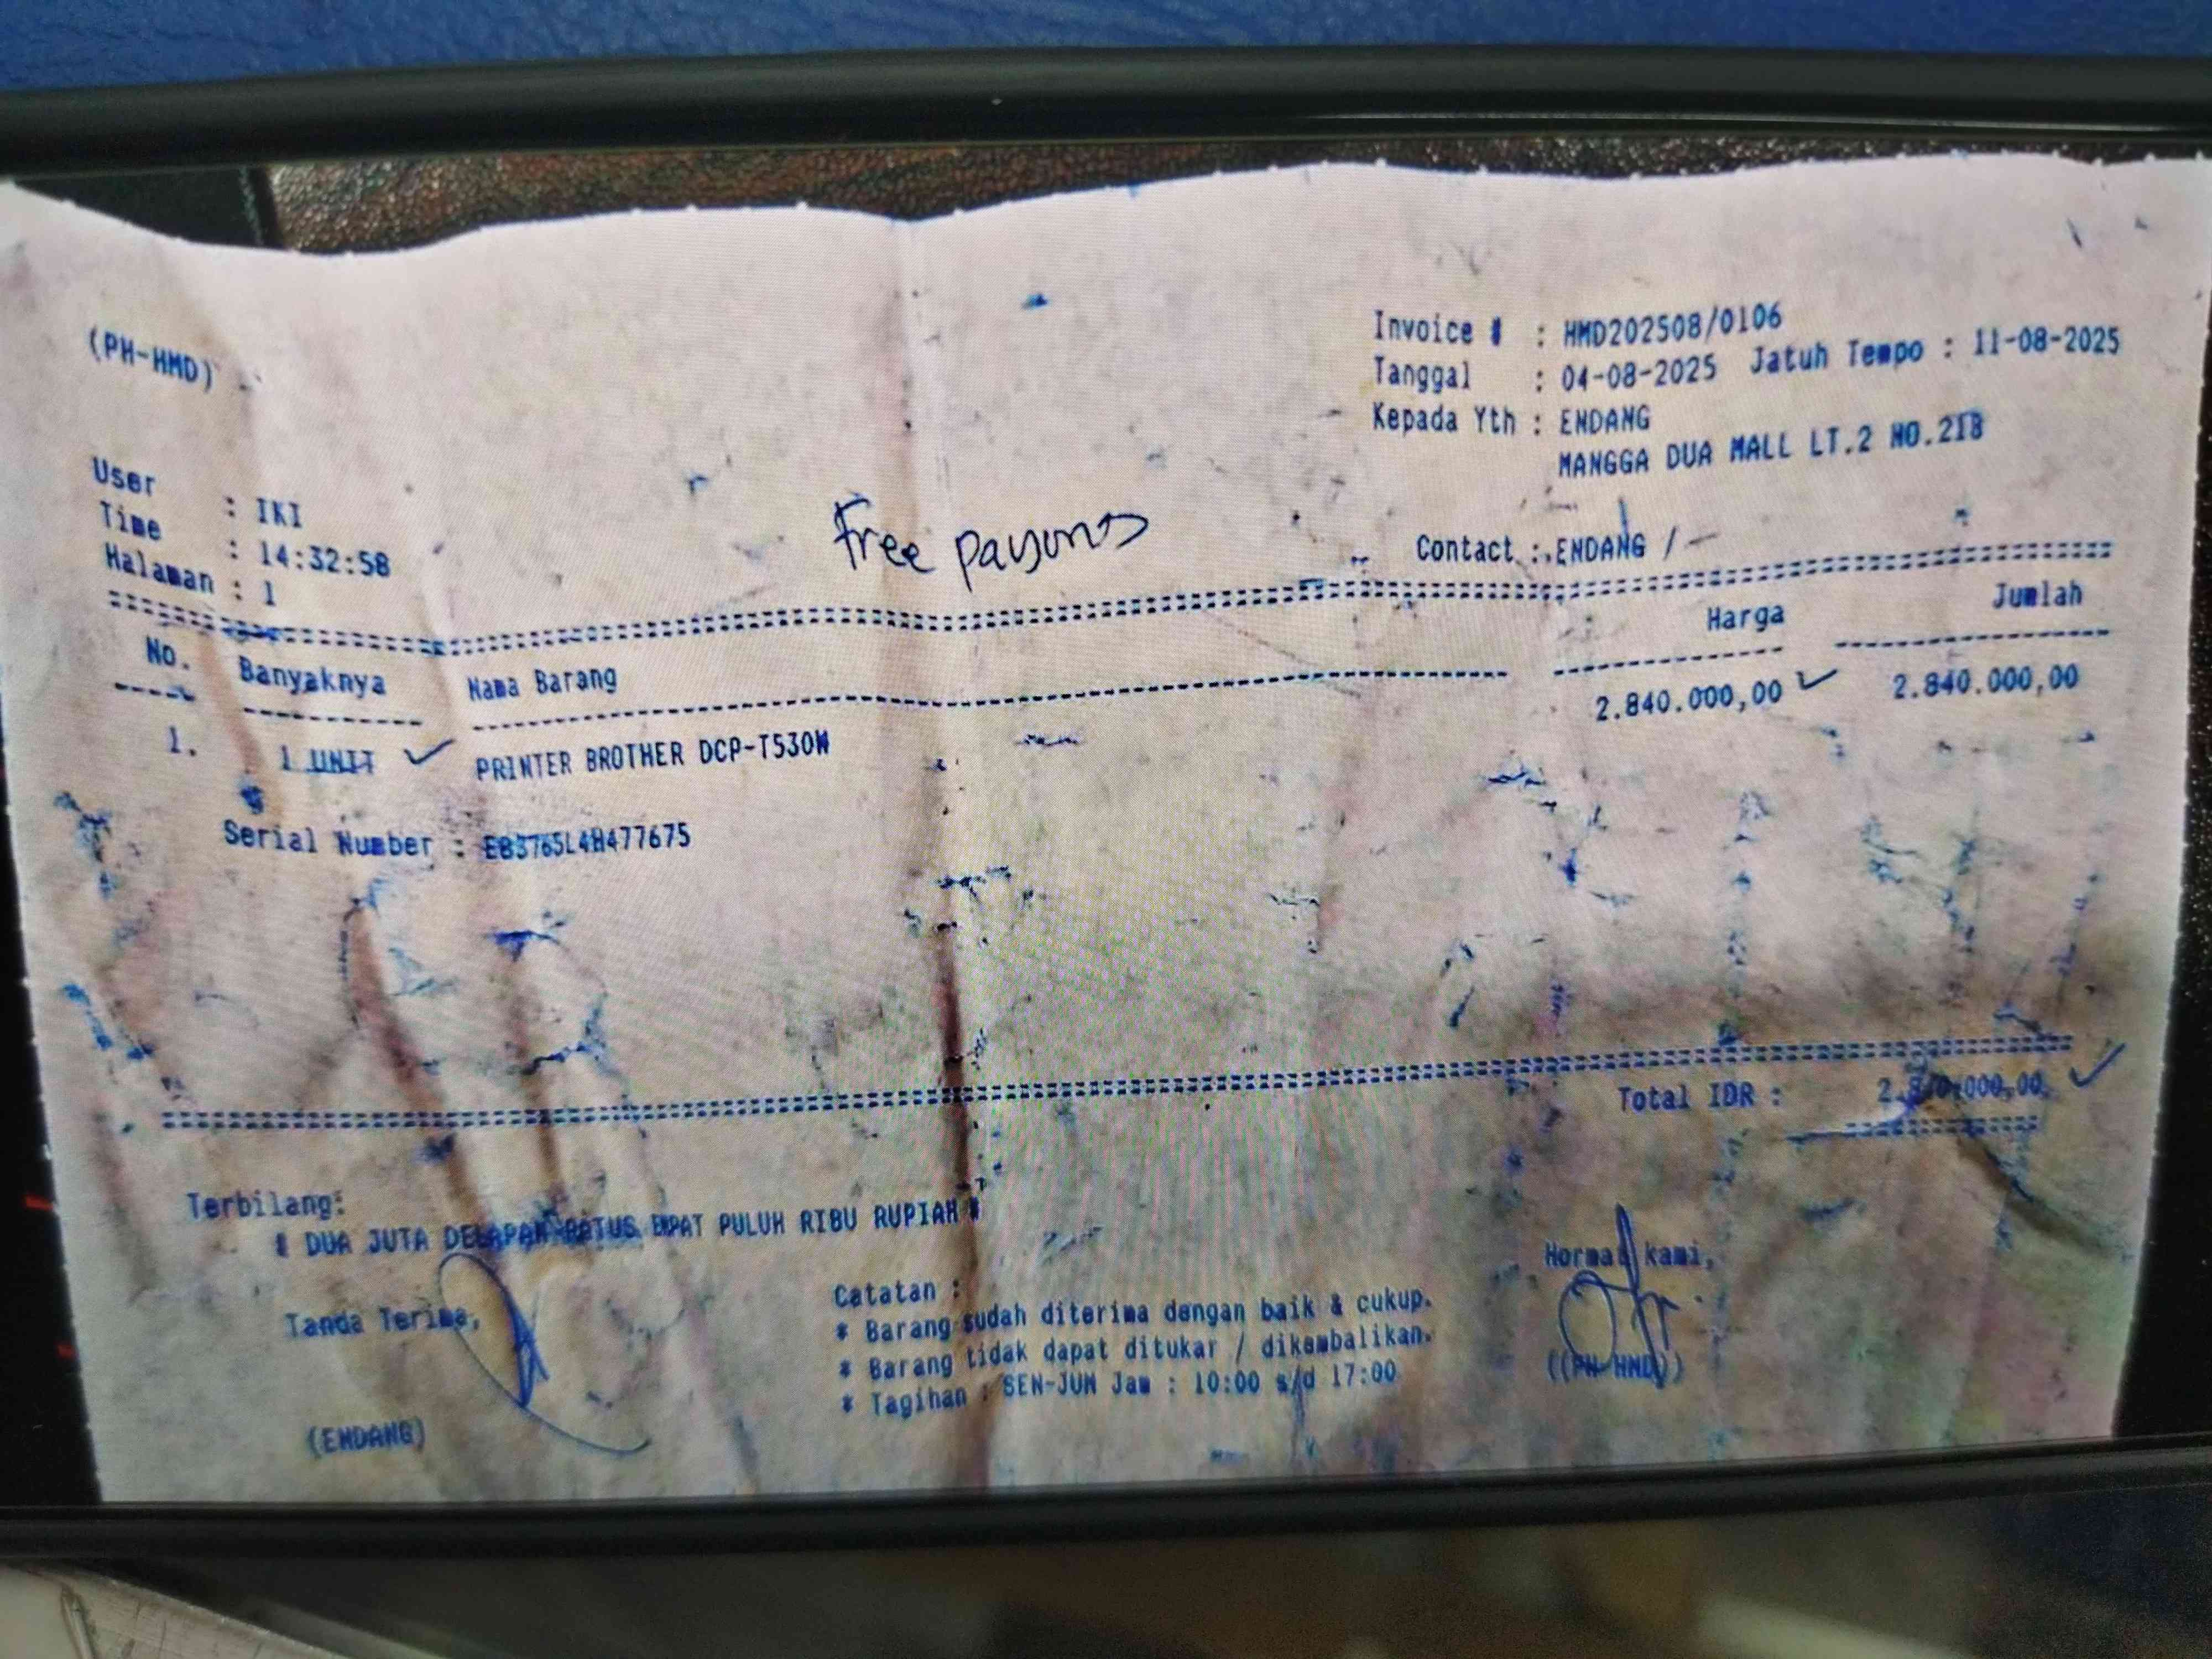 (PH-HMD)
Invoice # : HMD202508/0106
Tanggal : 04-08-2025 Jatuh Tempo : 11-08-2025
Kepada Yth : ENDANG
MANGGA DUA MALL LT.2 NO.21B
User : IKI
Time : 14:32:58
Halaman : 1
Free payung
Contact : ENDANG / -
No. Banyaknya Nama Barang Harga Jumlah
1. 1 UNIT PRINTER BROTHER DCP-T530W 2.840.000,00 2.840.000,00
Serial Number : E83765L4H477675
Total IDR : 2.840.000,00
Terbilang:
# DUA JUTA DELAPAN RATUS EMPAT PULUH RIBU RUPIAH #
Tanda Terima,
(ENDANG)
Catatan :
* Barang sudah diterima dengan baik & cukup.
* Barang tidak dapat ditukar / dikembalikan.
* Tagihan : SEN-JUM Jam : 10:00 s/d 17:00
Hormat kami,
((PH-HMD))